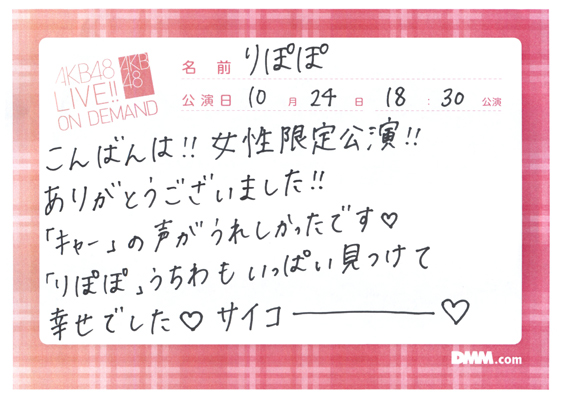 AKB48
LIVE!!
ON DEMAND
AKB
48
名前 りぽぽ
公演日 10月24日 18:30公演
こんばんは!! 女性限定公演!!
ありがとうございました!!
「キャー」の声がうれしかったです♡
「りぽぽ」うちわもいっぱい見つけて
幸せでした♡ サイコ────♡
DMM.com